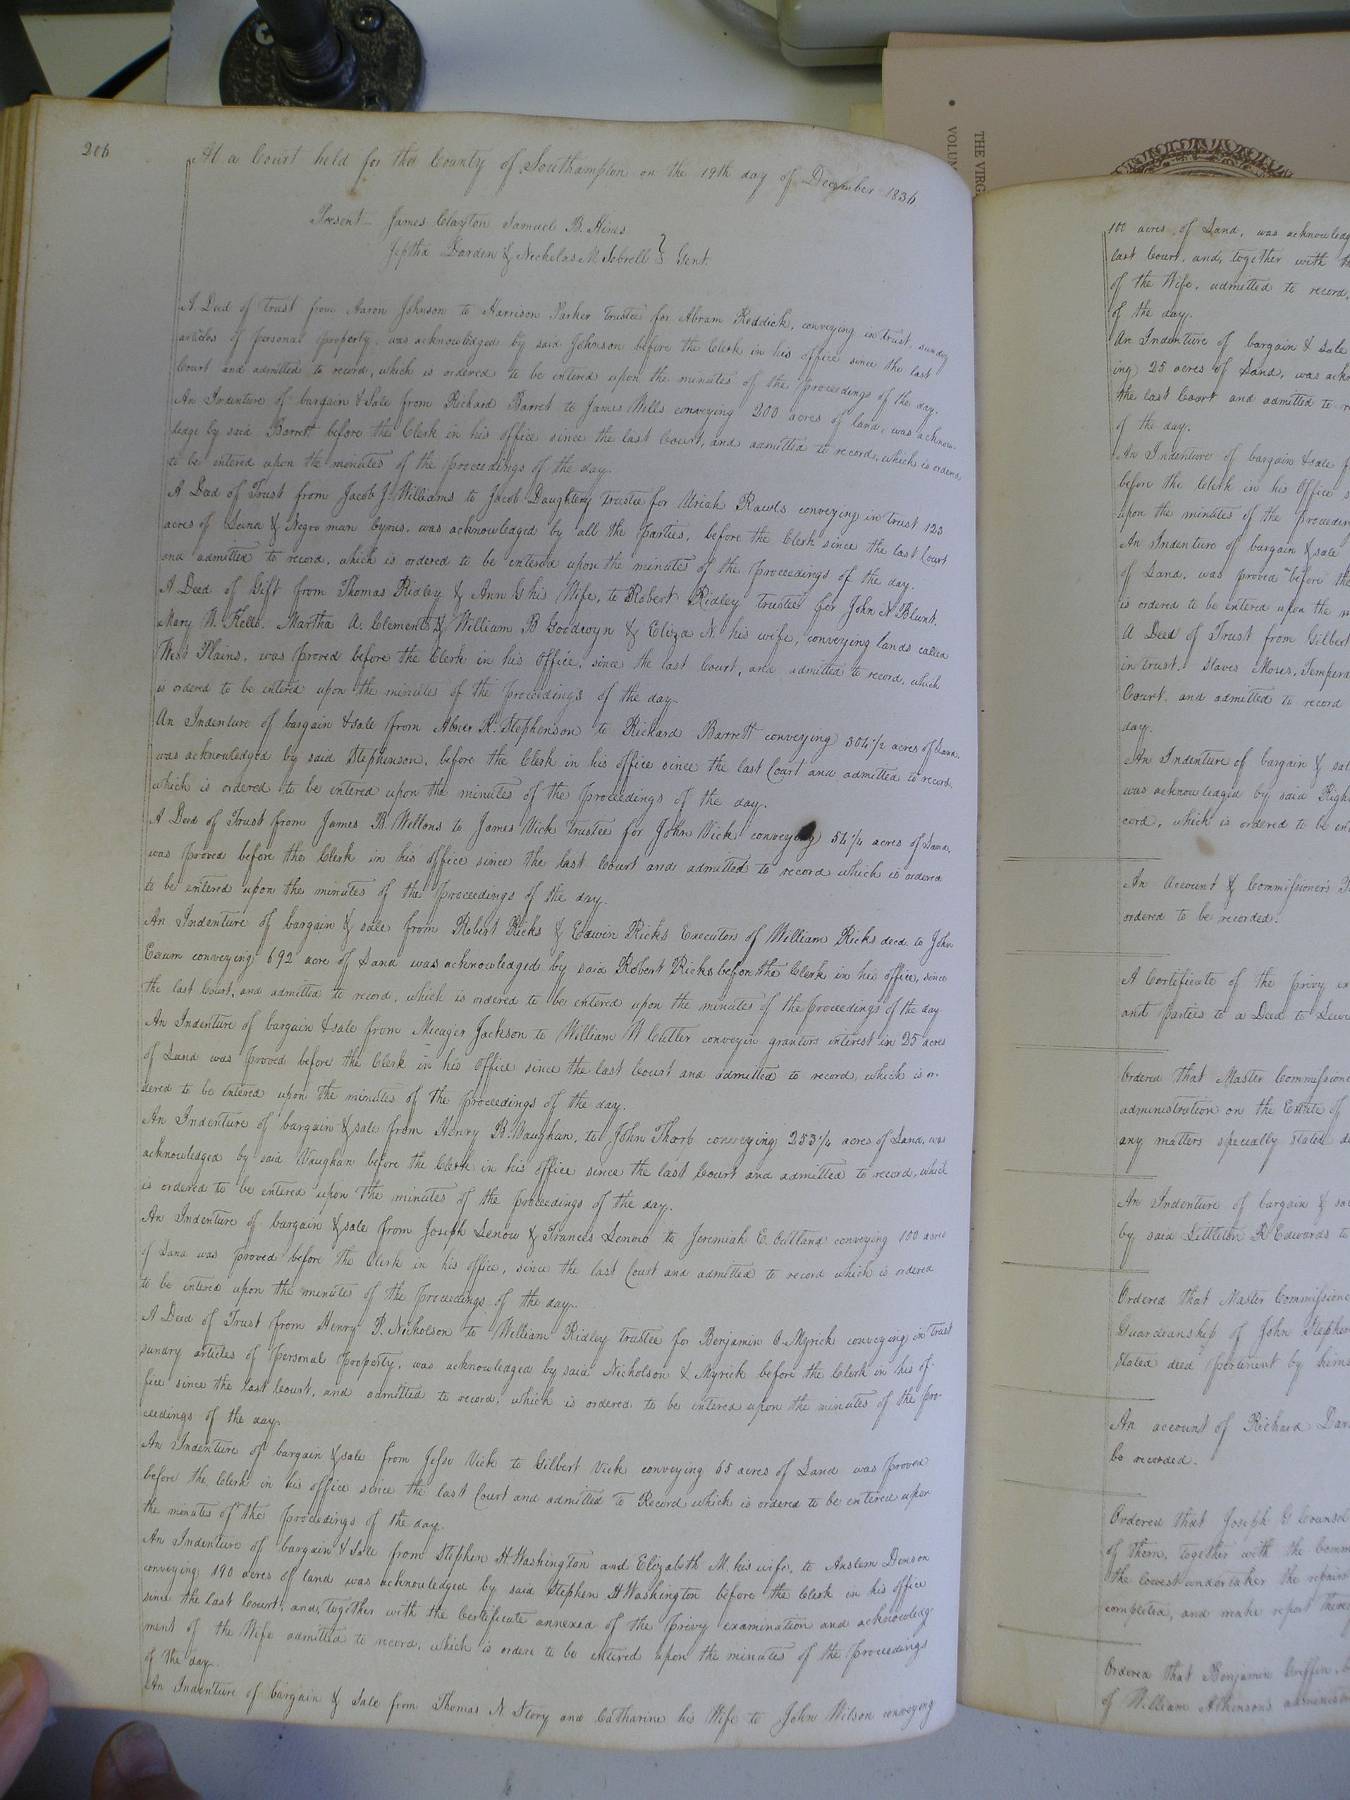 206
At a Court held for the County of Southampton on the 19th day of December 1836
Present James Clayton Samuel B. Hines
Jeptha Darden & Nicholas M Sebrell Gent.
A Deed of trust from Aaron Johnson to Harrison Parker trustee for Abram Reddick, conveying in trust, sundry
articles of personal property, was acknowledged by said Johnson before the Clerk in his office since the last
Court and admitted to record, which is ordered to be entered upon the minutes of the proceedings of the day.
An Indenture of bargain & Sale from Richard Barret to James Wells conveying 200 acres of land, was acknow-
ledge by said Barrett before the Clerk in his office since the last Court, and admitted to record, which is ordered
to be entered upon the minutes of the proceedings of the day.
A Deed of Trust from Jacob J. Williams to Jacob Daughtery trustee for Uriah Rawls conveying in trust 123
acres of Land & Negro man Cyrus, was acknowledged by all the Parties, before the Clerk since the last Court
and admitted to record, which is ordered to be entered upon the minutes of the proceedings of the day.
A Deed of Gift from Thomas Ridley & Ann G his Wife, to Robert Ridley trustee for John N. Blunt,
Mary W. Kello, Martha A. Clements & William B Goodwyn & Eliza N. his wife, conveying lands called
West Plains, was proved before the Clerk in his Office, since the last Court, and admitted to record, which
is ordered to be entered upon the minutes of the proceedings of the day.
An Indenture of bargain & sale from Abner K. Stephenson to Richard Barrett conveying 304 1/2 acres of Land,
was acknowledged by said Stephenson, before the Clerk in his office since the last Court and admitted to record,
which is ordered to be entered upon the minutes of the proceedings of the day.
A Deed of Trust from James B. Wellons to James Vick trustee for John Vick conveying 54 1/4 acres of Land,
was proved before the Clerk in his office since the last Court and admitted to record which is ordered
to be entered upon the minutes of the proceedings of the day.
An Indenture of bargain & sale from Robert Ricks & Edwin Ricks Executors of William Ricks decd. to John
Exum conveying 692 acre of Land was acknowledged by said Robert Ricks before the Clerk in his office, since
the last Court, and admitted to record, which is ordered to be entered upon the minutes of the proceedings of the day
An Indenture of bargain & sale from Micager Jackson to William W Cutler conveyin grantors interest in 25 acres
of Land was proved before the Clerk in his Office since the last Court and admitted to record, which is or-
dered to be entered upon the minutes of the proceedings of the day.
An Indenture of bargain & sale from Henry B. Vaughan, to John Thorp conveying 253 1/4 acres of Land, was
acknowledged by said Vaughan before the Clerk in his office since the last Court and admitted to record, which
is ordered to be entered upon the minutes of the proceedings of the day.
An Indenture of bargain & sale from Joseph Lenow & Frances Lenow to Jeremiah C. Outland conveying 100 acres
of Land was proved before the Clerk in his office, since the last Court and admitted to record which is ordered
to be entered upon the minutes of the proceedings of the day.
A Deed of Trust from Henry P. Nicholson to William Ridley trustee for Benjamin C. Myrick conveying in trust
sundry articles of personal property, was acknowledged by said Nicholson & Myrick before the Clerk in his of-
fice since the last Court, and admitted to record, which is ordered to be entered upon the minutes of the pro-
ceedings of the day.
An Indenture of bargain & sale from Jesse Vick to Gilbert Vick conveying 65 acres of Land was proved
before the Clerk in his office since the last Court and admitted to Record which is ordered to be entered upon
the minutes of the proceedings of the day.
An Indenture of bargain & Sale from Stephen H. Washington and Elizabeth M. his wife, to Anslem Denson
conveying 190 acres of land was acknowledged by said Stephen H Washington before the Clerk in his office
since the last Court, and, together with the Certificate annexed of the Privy examination and acknowledg-
ment of the Wife admitted to record, which is ordere to be entered upon the minutes of the proceedings
of the day.
An Indenture of bargain & Sale from Thomas N. Story and Catharine his Wife to John Wilson conveying
THE VIRG
VOLUM
100 acres of Land, was acknowledg
last Court, and, together with th
of the Wife, admitted to record,
of the day.
An Indenture of bargain & Sale
ing 25 acres of Land, was ackn
the last Court and admitted to r
of the day.
An Indenture of bargain & sale f
before the Clerk in his Office s
upon the minutes of the proceedin
An Indenture of bargain & sale
of Land, was proved before the
is ordered to be entered upon the m
A Deed of Trust from Gilbert
in trust. Slaves Moses, Tempera
Court, and admitted to record
day.
An Indenture of bargain & sal
was acknowledged by said Righ
cord, which is ordered to be en
An Account & Commissioner's
ordered to be recorded.
A Certificate of the privy ex
and parties to a Deed to Lewi
Ordered that Master Commissione
administration on the Estate of
any matters specially stated d
An Indenture of bargain & sa
by said Littleton R Edwards to
Ordered that Master Commissione
Guardianship of John Stephen
stated deed pertinent by hims
An account of Richard Dar
be recorded.
Ordered that Joseph G Counsel
of them, together with the Comm
the lowest undertaker the repairs
completed, and make report there
Ordered that Benjamin Griffin,
of William Atkinson's administr